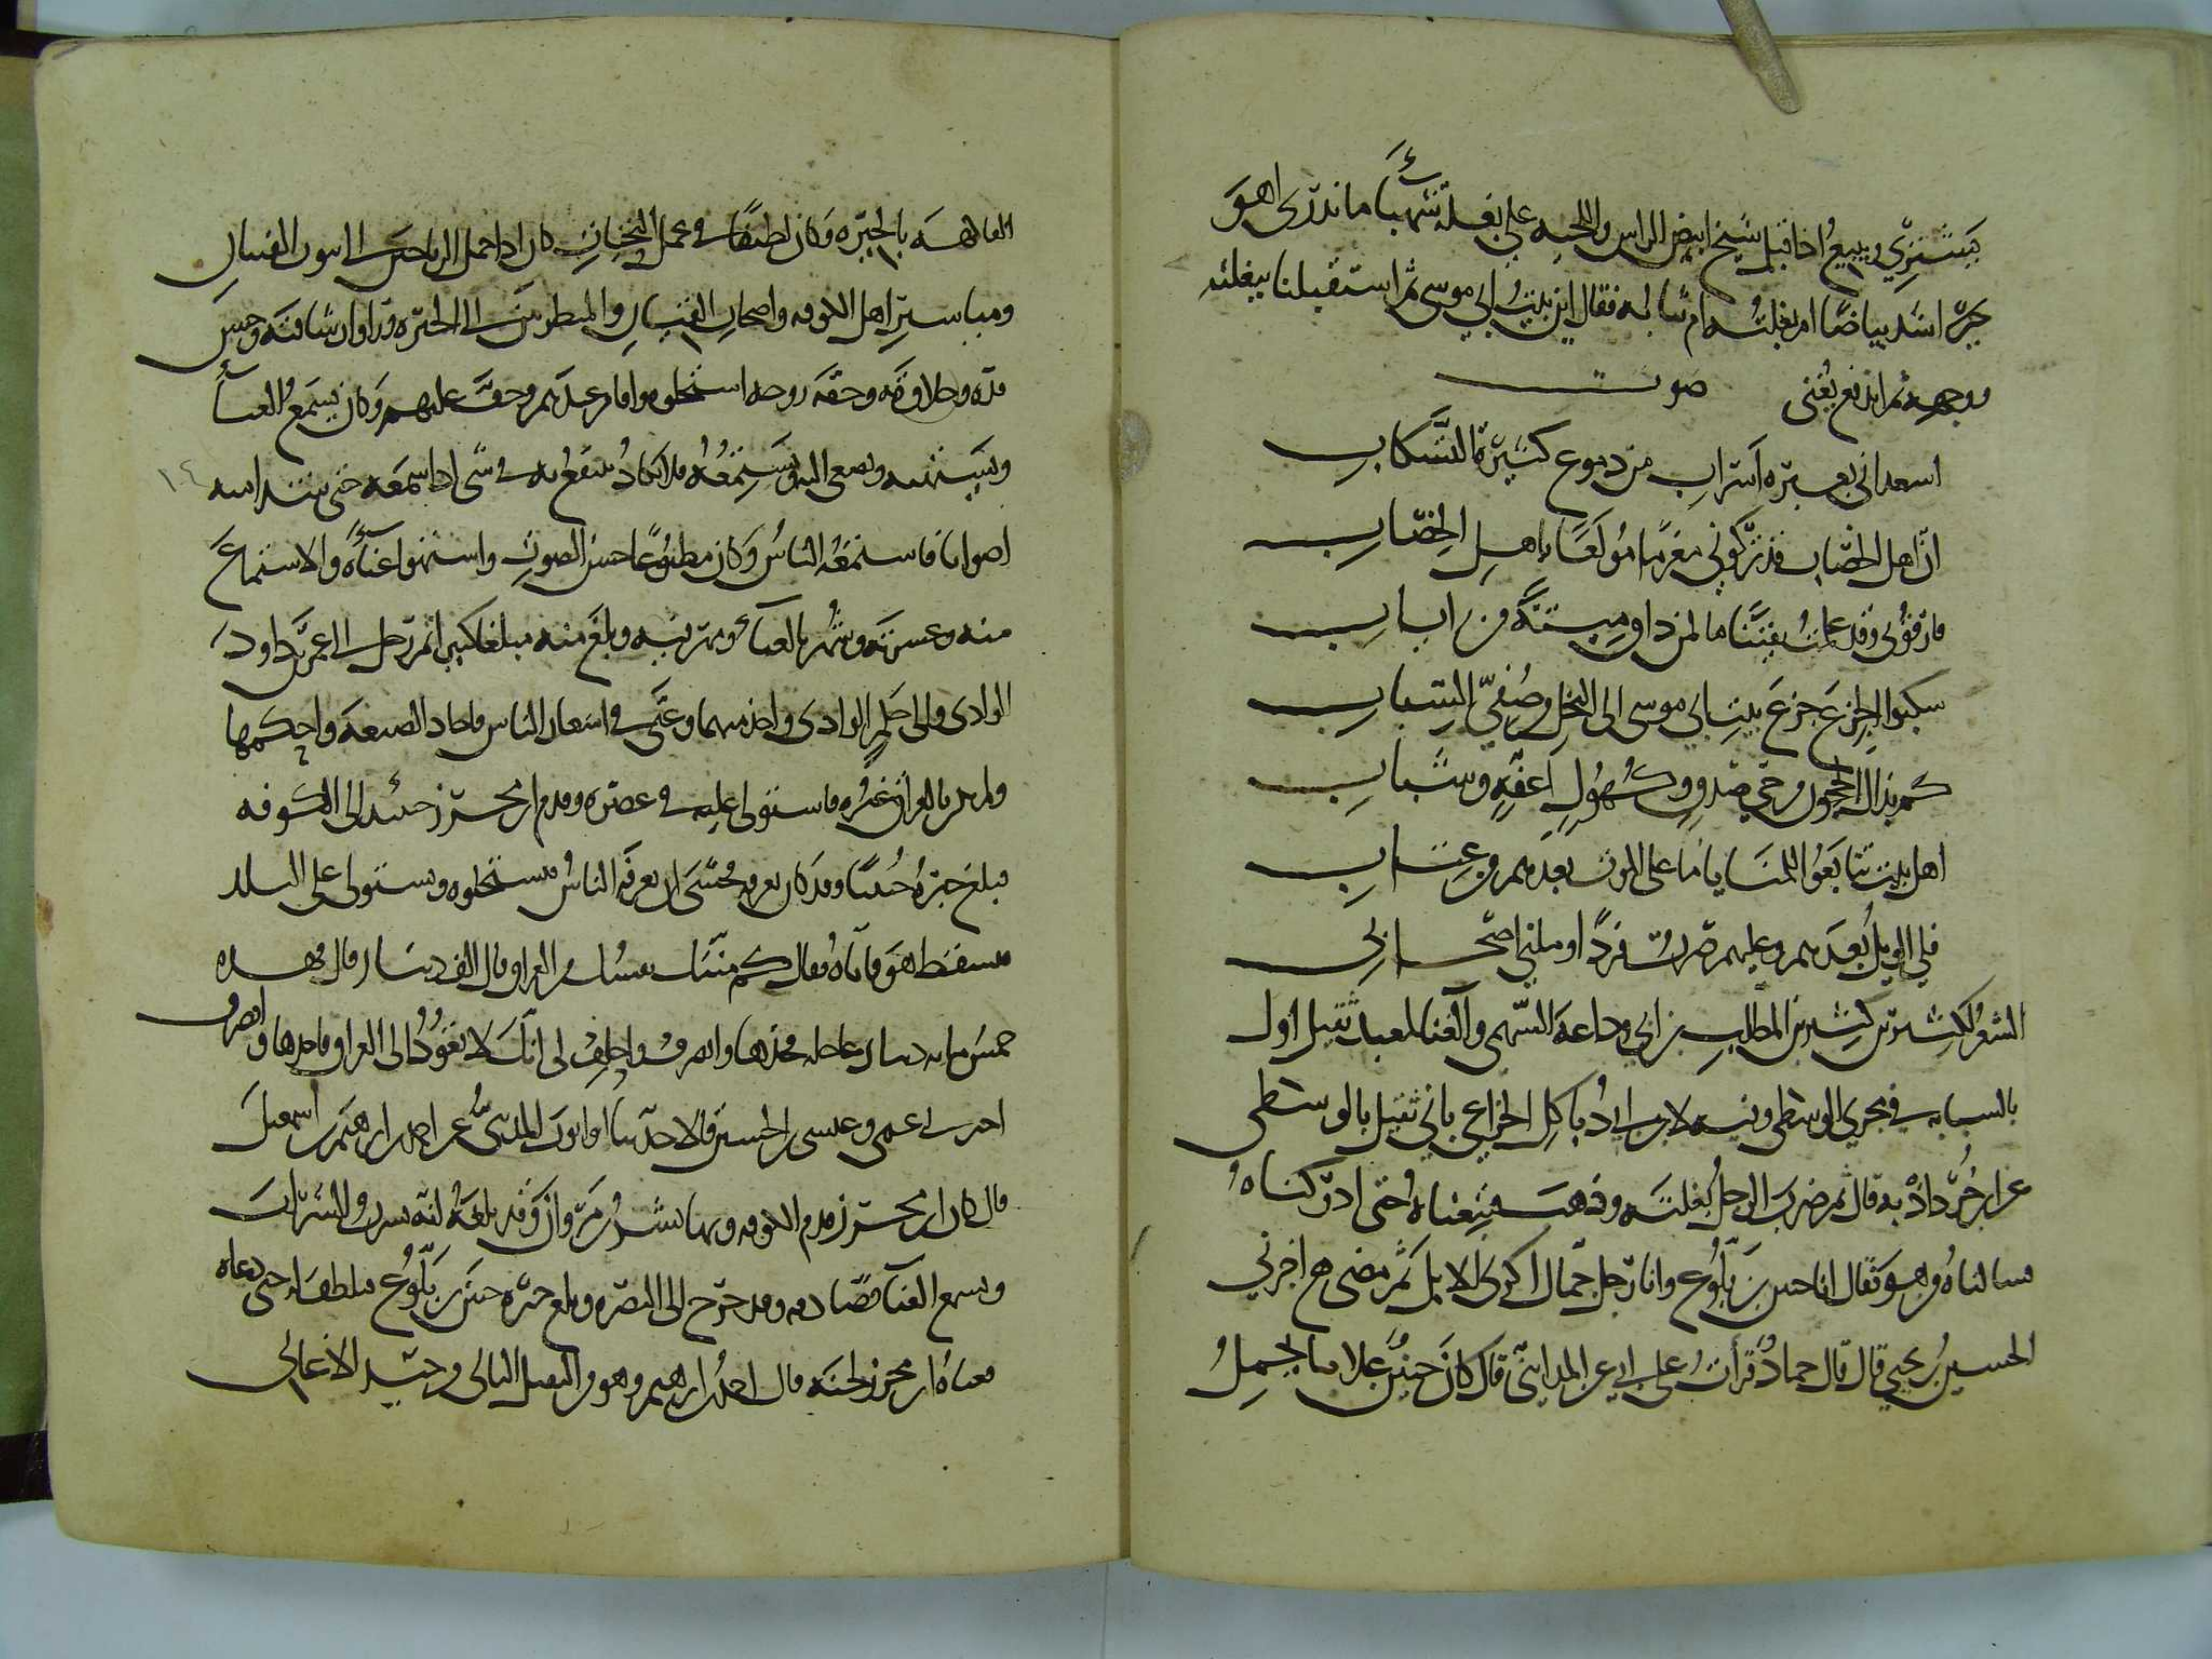 يشتري ويبيع اذ اقبل شيخ ابيض الراس واللحيه على بغلة شهباء ما ندري اهو
اشد بياضا ام بغلته ام ثيابه فقال اين بيت ابي موسى ثم استقبلنا ببغلته
ووجهه ثم اندفع يغني صوت
اسعداني بعبرة اسراب من دموع كثيرة التسكاب
ان اهل الخضاب قد تركوني مغرما مولعا باهل الخضاب
فارقوني وقد علمت يقينا ما لمن ذاق ميتة من اياب
سكنوا الجزع جزع بيت ابي موسى الى النخل وصفي السباب
كم بذاك الحجون من حي صدق وكهول اعفة وشباب
اهل بيت تتابعوا للمنايا ما على الموت بعدهم من عتاب
فلي الويل بعدهم وعليهم صرت فردا وملني اصحابي
الشعر لكثير بن كثير بن المطلب بن ابي وداعة السهمي والغنا لمعبد ثقيل اول
بالسبابه في مجرى الوسطى وفيه لابن ابي دباكل الخزاعي ثاني ثقيل بالوسطى
عن ابن خرداذبه قال ثم ضرب الرجل بغلته وذهب فتبعناه حتى ادركناه
فسالناه من هو فقال انا حنين بن بلوع وانا رجل جمال اكري الابل ثم مضى اخبرني
الحسين بن يحيى قال قال حماد قرات على ابي عن المدايني قال كان حنين غلاما يحمل
الفاكهة بالحيره وكان لطيفا في عمل التحيات كان اذا حمل الرياحين الى بيوت الفتيان
ومياسير اهل الكوفه واصحاب القيان والمتطربين الى الحيره وراوا رشاقته وحسن
قده وحلاوته وخفة روحه استحلوه واقام عندهم وخف عليهم وكان يسمع الغنا
ويشتهيه ويصغي اليه ويستمعه فلا يكاد ينتفع به في شي اذا سمعه حتى شدا منه
اصواتا فاستمعه الناس وكان مطبوعا حسن الصوت واشتهوا غناه والاستماع
منه وعشرته وشهر بالغنا ومهر فيه وبلغ منه مبلغا كبيرا ثم رحل الى عمر بن داود
الوادي والى حكم الوادي واخذ منهما وغنى في اشعار الناس فاجاد الصنعة واحكمها
ولم يكن بالعراق غيره فاستولى عليه في عصره وقدم ابن محرز حينئذ الى الكوفه
فبلغ خبره حنينا وقد كان يعرفه فخشي ان يعرفه الناس فيستحلوه ويستولي على البلد
فيسقط هو فاتاه فقال كم منتك نفسك من العراق قال الف دينار قال فهذه
خمس مايه دينار عاجله فخذها وانصرف واحلف لي انك لا تعود الى العراق فاخذها وانصرف
اخبرني عمي وعيسى بن الحسين قالا حدثنا ابو ايوب المديني عن احمد بن ابراهيم بن اسمعيل
قال كان ابن محرز قدم الكوفه وبها بشر بن مروان وقد بلغه انه يشرب الشراب
ويسمع الغنا فصادفه وقد خرج الى البصره وبلغ خبره حنين بن بلوع فتلطف له حتى دعاه
فغناه ابن محرز لحنه قال احمد بن ابراهيم وهو من الثقيل الثاني من جيد الاغاني